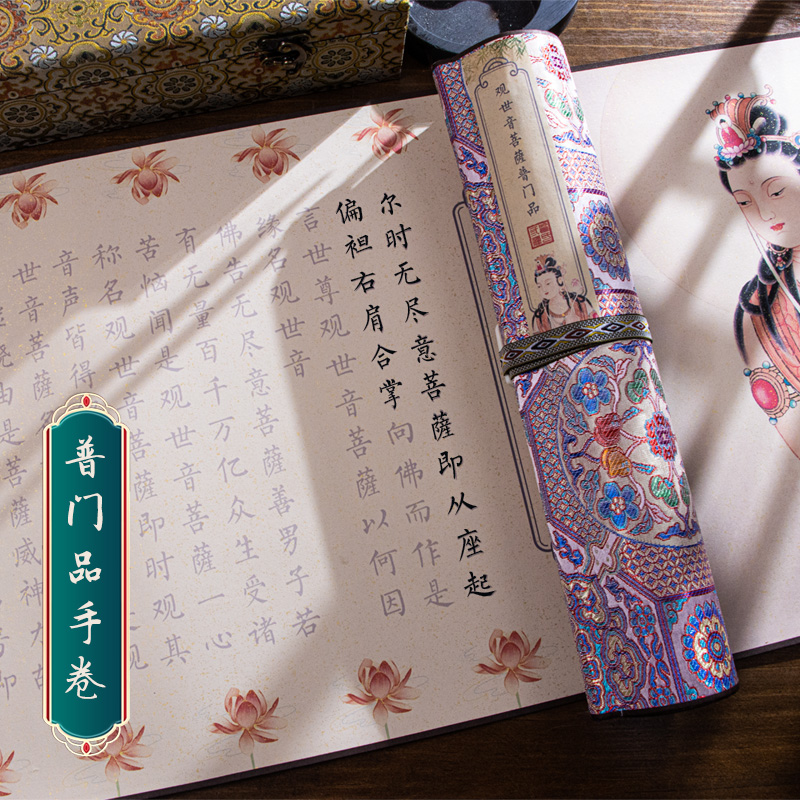 观世音菩萨普门品
尔时无尽意菩萨即从座起
偏袒右肩合掌向佛而作是
言世尊观世音菩萨以何因
缘名观世音
佛告无尽意菩萨善男子若
有无量百千万亿众生受诸
苦恼闻是观世音菩萨一心
称名观世音菩萨即时观其
音声皆得
世音菩萨名
由是菩萨威神力故
即
普门品手卷